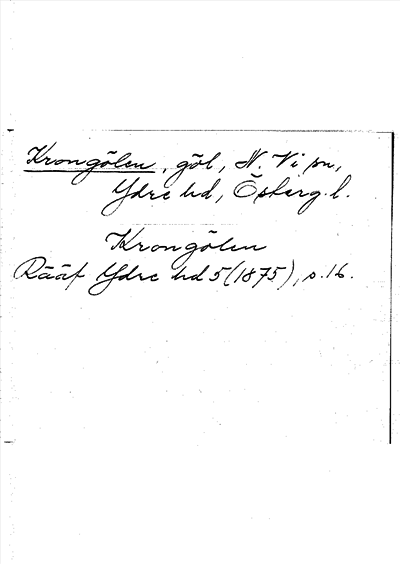 Krongölen, göl, N. Vi sn,
Ydre hd, Österg. l.
Krongölen
Rääf Ydre hd 5 (1875), s. 16.